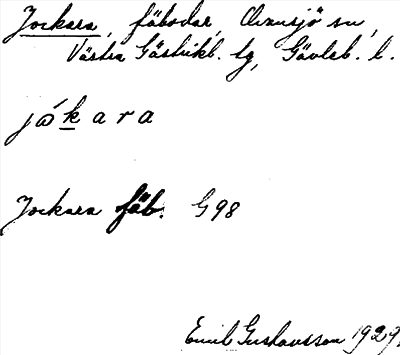 Jockara, fäbodar, Årsunda sn,
Västra Gästrikl. tg, Gävleb. l.
jåkara
Jockara fäb. G98
Emil Gustavsson 1929.